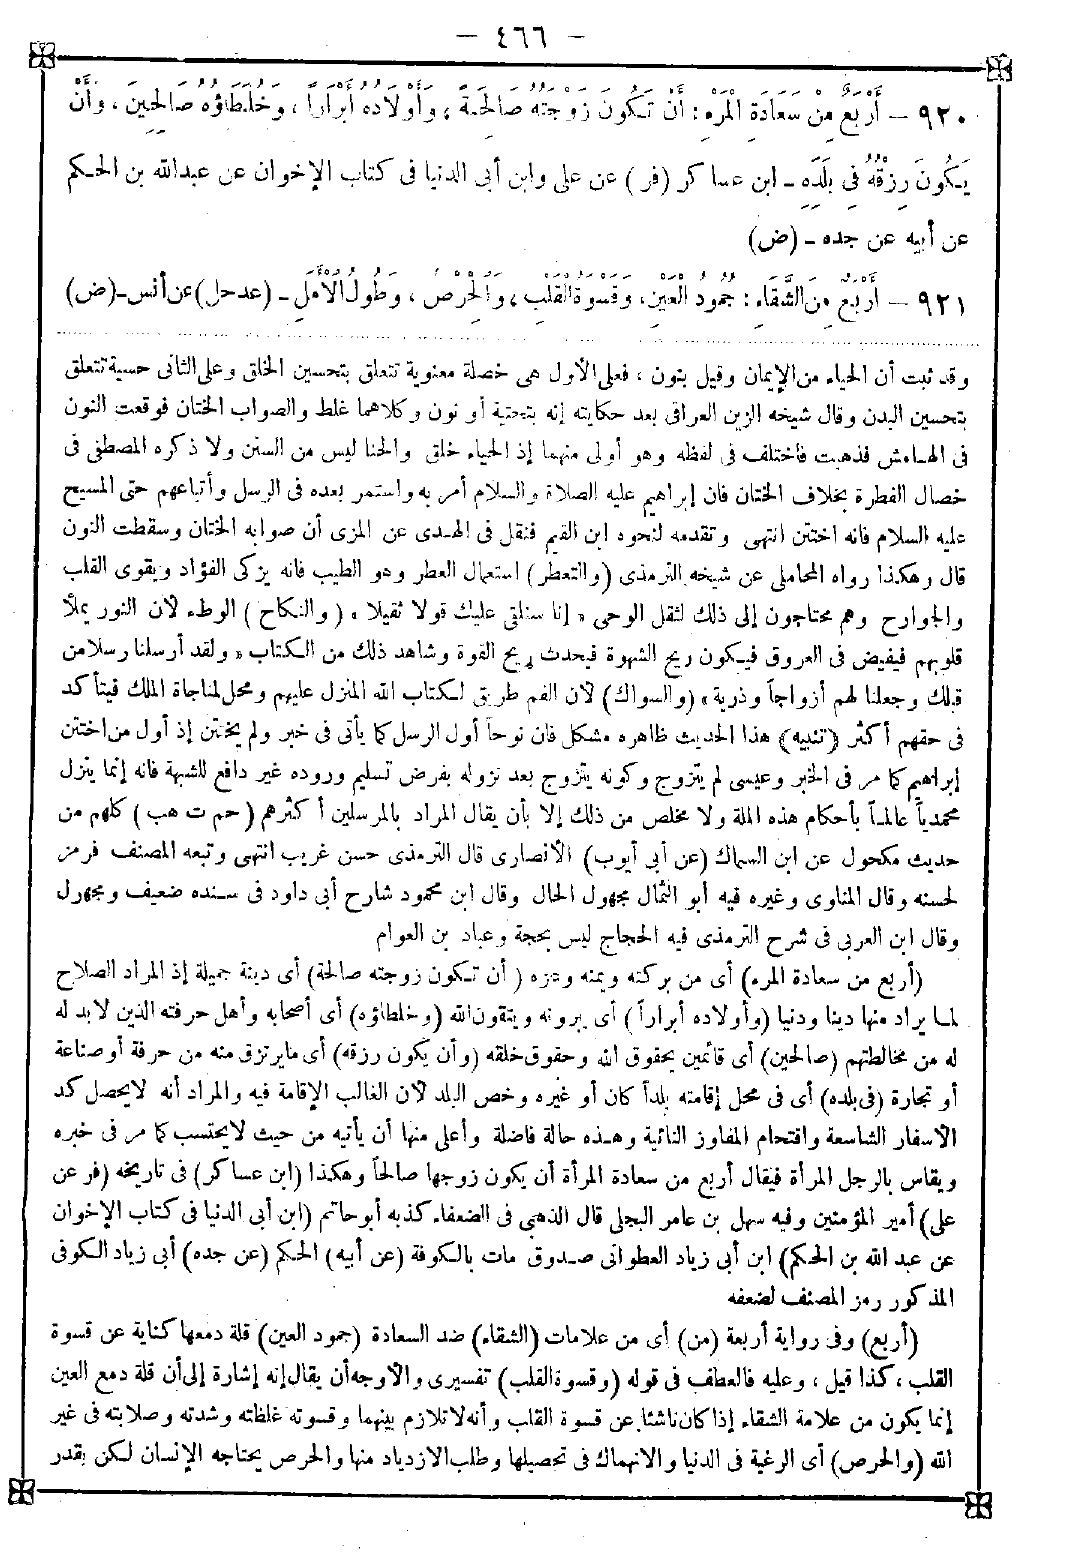 – ٤٦٦ –
٩٢٠ – أَرْبَعٌ مِنْ سَعَادَةِ الْمَرْءِ: أَنْ تَكُونَ زَوْجَتُهُ صَالِحَةً، وَأَوْلَادُهُ أَبْرَاراً، وَخُلَطَاؤُهُ صَالِحِينَ، وَأَنْ
يَكُونَ رِزْقُهُ فِي بَلَدِهِ – ابن عساكر (فر) عن على وابن أبى الدنيا فى كتاب الإخوان عن عبدالله بن الحكم
عن أبيه عن جده – (ض)
٩٢١ – أَرْبَعٌ مِنَ الشَّقَاءِ: جُمُودُ الْعَيْنِ، وَقَسْوَةُ الْقَلْبِ، وَالْحِرْصُ، وَطُولُ الْأَمَلِ – (عد حل) عن أنس – (ض)
وقد ثبت أن الحياء من الإيمان وقيل بنون، فعلى الأول هى خصلة معنوية تتعلق بتحسين الخلق وعلى الثانى حسية تتعلق
بتحسين البدن وقال شيخه الزين العراقى بعد حكايته إنه بتحتية أو نون وكلاهما غلط والصواب الختان فوقعت النون
فى الهامش فذهبت فاختلف فى لفظه وهو أولى منهما إذ الحياء خلق والحنا ليس من السنن ولا ذكره المصطفى فى
خصال الفطرة بخلاف الختان فان إبراهيم عليه الصلاة والسلام أمر به واستمر بعده فى الرسل وأتباعهم حتى المسيح
عليه السلام فانه اختتن انتهى وتقدمه لنحوه ابن القيم فنقل فى الهدى عن المزى أن صوابه الختان وسقطت النون
قال وهكذا رواه المحاملى عن شيخه الترمذى (والتعطر) استعمال العطر وهو الطيب فانه يزكى الفؤاد ويقوى القلب
والجوارح وهم محتاجون إلى ذلك لثقل الوحى « إنا سنلقى عليك قولا ثقيلا » (والنكاح) الوطء لأن النور يملأ
قلوبهم فيفيض فى العروق فيكون ريح الشهوة فيحدث ريح القوة وشاهد ذلك من الكتاب « ولقد أرسلنا رسلا من
قبلك وجعلنا لهم أزواجاً وذرية » (والسواك) لأن الفم طريق لكتاب الله المنزل عليهم ومحل لمناجاة الملك فيتأكد
فى حقهم أكثر (تنبيه) هذا الحديث ظاهره مشكل فان نوحاً أول الرسل كما يأتى فى خبر ولم يختتن إذ أول من اختتن
إبراهيم كما مر فى الخبر وعيسى لم يتزوج وكونه يتزوج بعد نزوله بفرض تسليم وروده غير دافع للشبهة فانه إنما ينزل
محمدياً عالماً بأحكام هذه الملة ولا مخلص من ذلك إلا بأن يقال المراد بالمرسلين أكثرهم (حم ت هب) كلهم من
حديث مكحول عن ابن السماك (عن أبى أيوب) الأنصارى قال الترمذى حسن غريب انتهى وتبعه المصنف فرمز
لحسنه وقال المناوى وغيره فيه أبو الثمال مجهول الحال وقال ابن محمود شارح أبى داود فى سنده ضعيف ومجهول
وقال ابن العربى فى شرح الترمذى فيه الحجاج ليس بحجة وعباد بن العوام
(أربع من سعادة المرء) أى من بركته ويمنه وعزه (أن تكون زوجته صالحة) أى دينة جميلة إذ المراد الصلاح
لما يراد منها دينا ودنيا (وأولاده أبراراً) أى يبرونه ويتقون الله (وخلطاؤه) أى أصحابه وأهل حرفته الذين لابد له
له من مخالطتهم (صالحين) أى قائمين بحقوق الله وحقوق خلقه (وأن يكون رزقه) أى مايرتزق منه من حرفة أو صناعة
أو تجارة (فى بلده) أى فى محل إقامته بلداً كان أو غيره وخص البلد لأن الغالب الإقامة فيه والمراد أنه لايحصل كد
الأسفار الشاسعة واقتحام المفاوز النائية وهذه حالة فاضلة وأعلى منها أن يأتيه من حيث لايحتسب كما مر فى خبره
ويقاس بالرجل المرأة فيقال أربع من سعادة المرأة أن يكون زوجها صالحاً وهكذا (ابن عساكر) فى تاريخه (فر عن
على) أمير المؤمنين وفيه سهل بن عامر البجلى قال الذهبى فى الضعفاء كذبه أبو حاتم (ابن أبى الدنيا فى كتاب الإخوان
عن عبد الله بن الحكم) ابن أبى زياد العطوانى صدوق مات بالكوفة (عن أبيه) الحكم (عن جده) أبى زياد الكوفى
المذكور رمز المصنف لضعفه
(أربع) وفى رواية أربعة (من) أى من علامات (الشقاء) ضد السعادة (جمود العين) قلة دمعها كناية عن قسوة
القلب، كذا قيل، وعليه فالعطف فى قوله (وقسوة القلب) تفسيرى والأوجه أن يقال إنه إشارة إلى أن قلة دمع العين
إنما يكون من علامة الشقاء إذا كان ناشئا عن قسوة القلب وأنه لا تلازم بينهما وقسوته غلظته وشدته وصلابته فى غير
الله (والحرص) أى الرغبة فى الدنيا والانهماك فى تحصيلها وطلب الازدياد منها والحرص يحتاجه الإنسان لكن بقدر